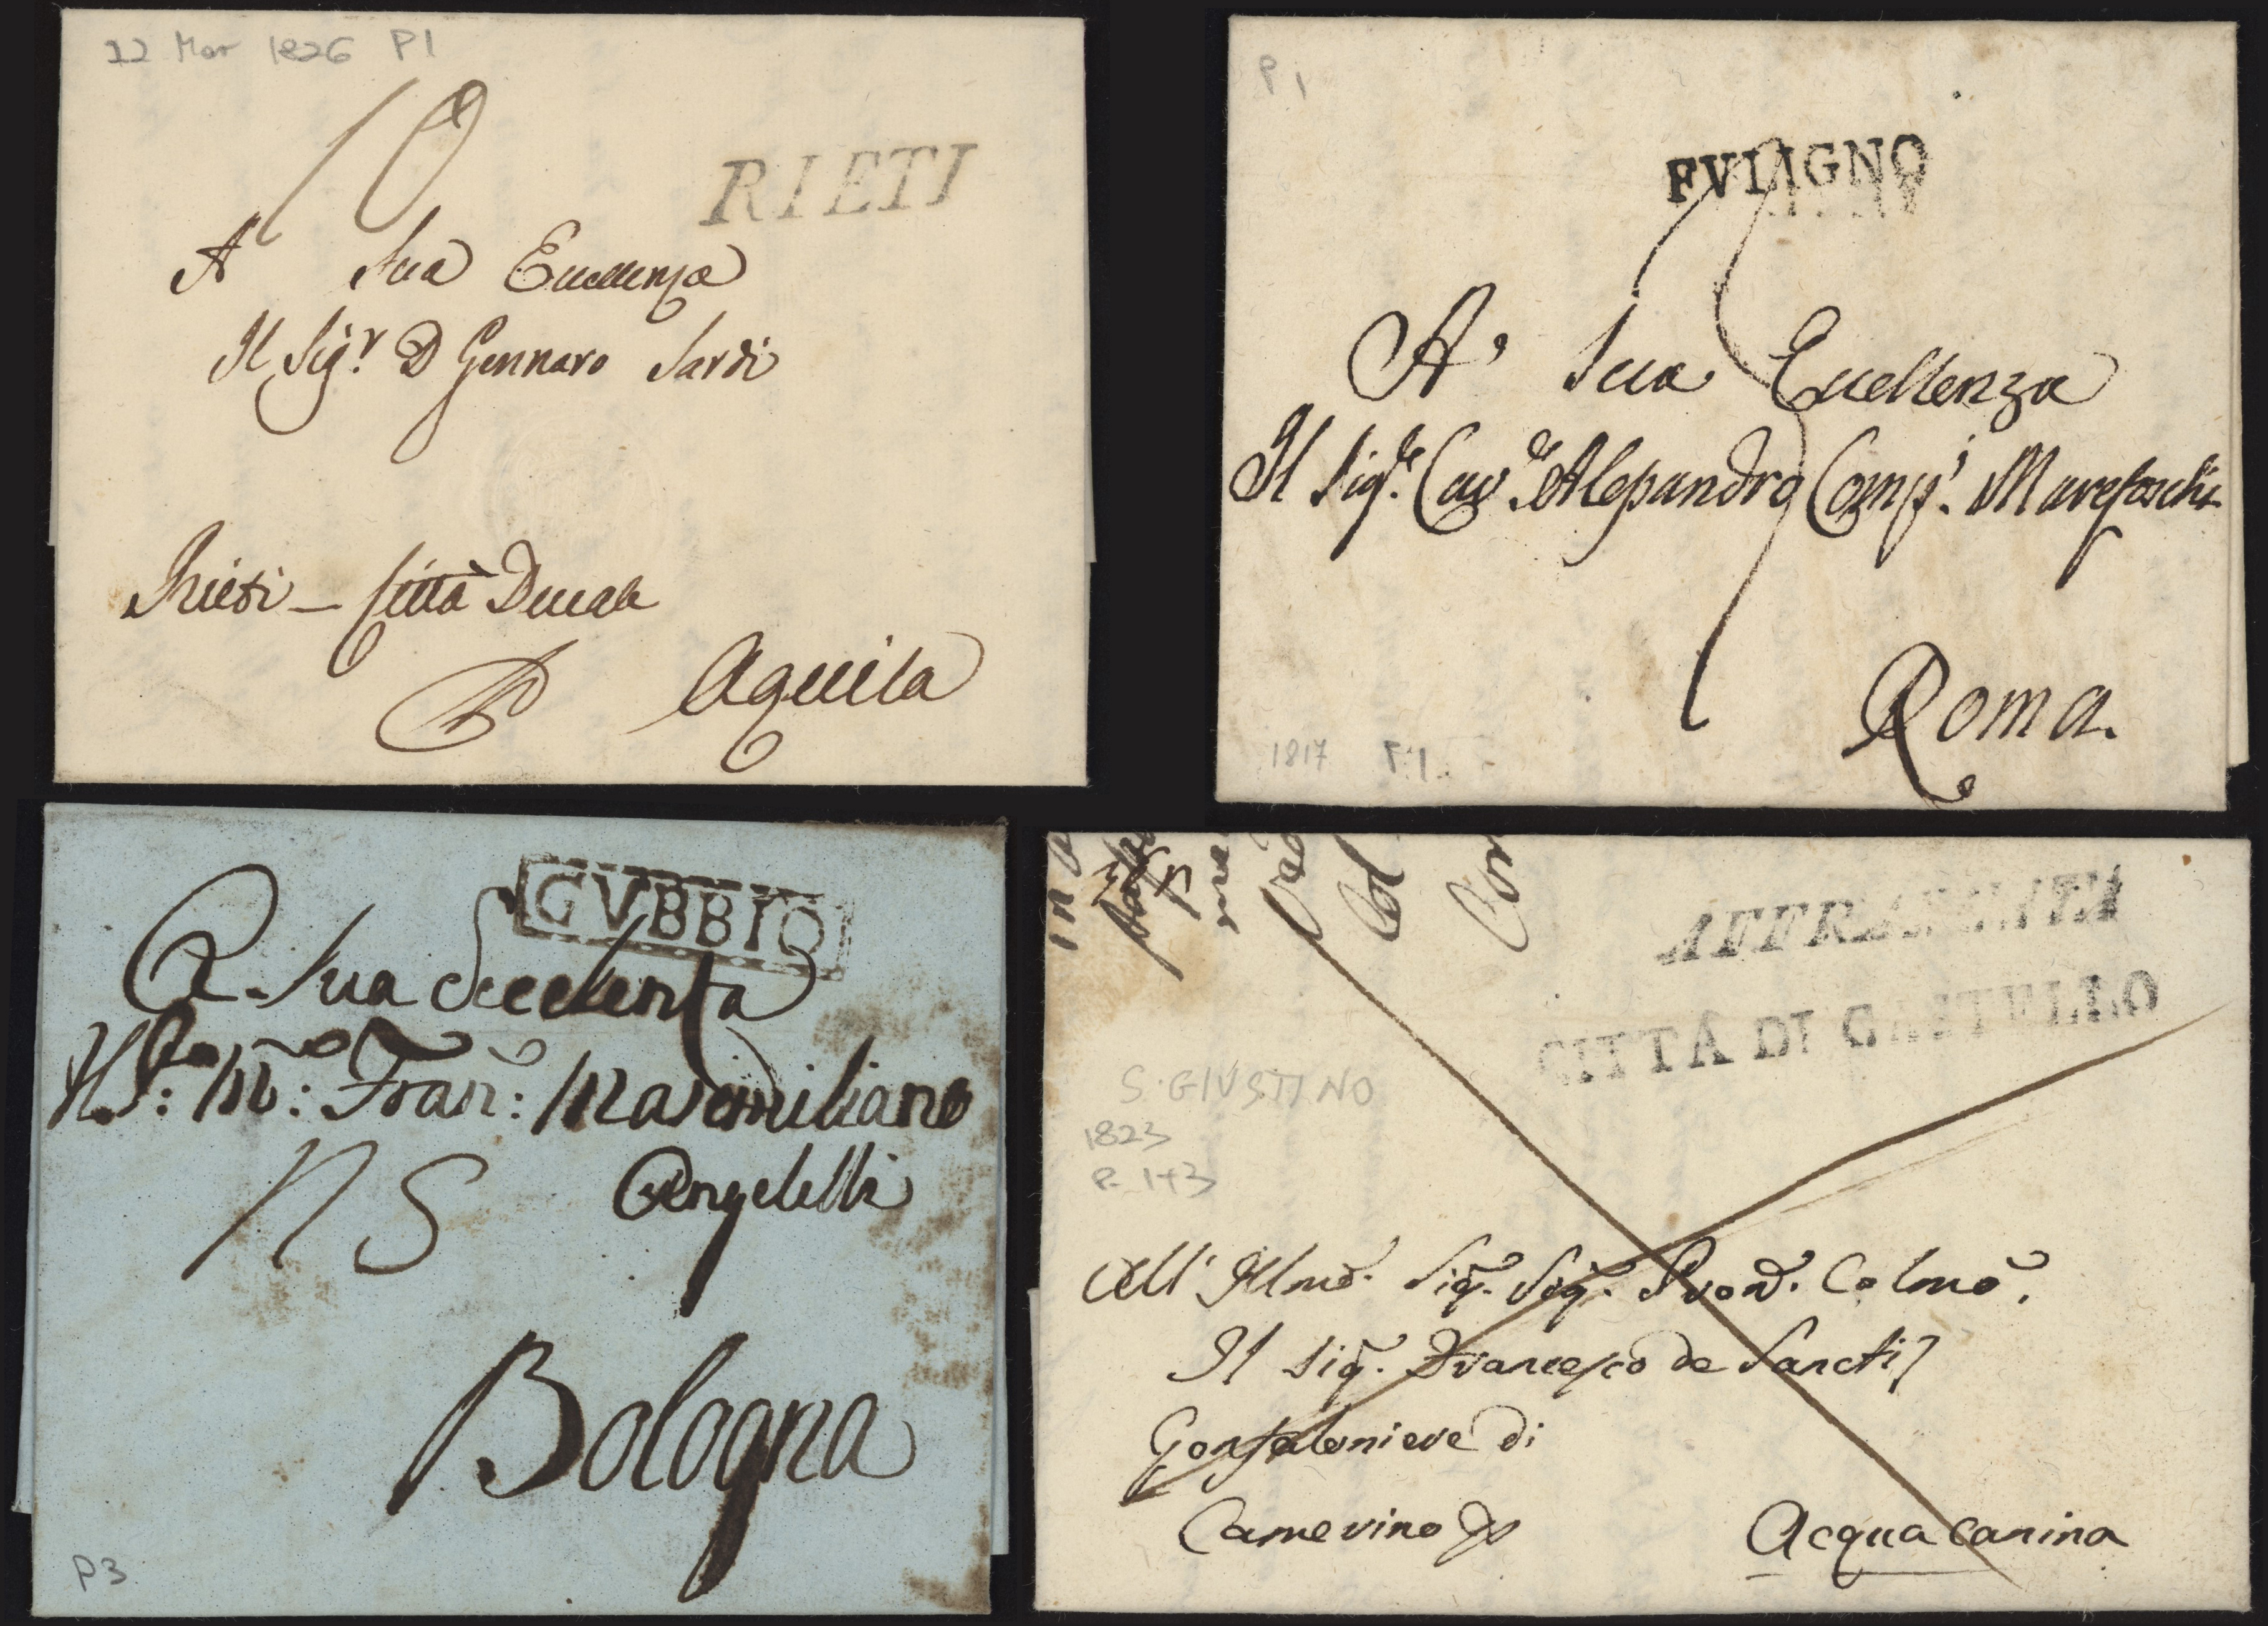 22 Mar 1826 P1
10
RIETI
A Sua Eccellenza
Il Sigr. D Gennaro Sardi
Rieti – Città Ducale
Aquila
P 1
FVLIGNO
A' Sua Eccellenza
Il Sigre. Cave. Alessandro Compi. Marefoschi
Roma.
1817 P.1.
GVBBIO
A. Sua Eccelenza
Angelelli
Bologna
P3
AFFRANCATA
CITTÀ DI CASTELLO
S. GIUSTINO
1823
P. 1+3
All' Illmo. Sig. Sig. Pron. Colmo.
Il Sig. Francesco de Sanctis
Gonfaloniere di
Camerino Acquacanina